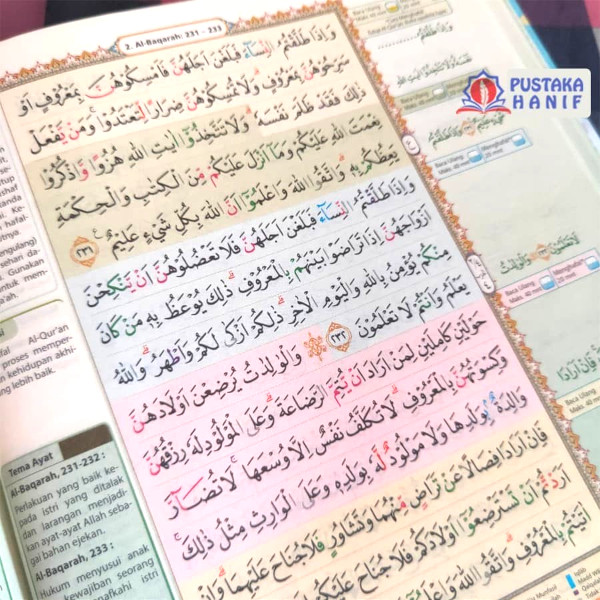 2. Al-Baqarah: 231 - 233
PUSTAKA
HANIF
وَاِذَا طَلَّقْتُمُ النِّسَاۤءَ فَبَلَغْنَ اَجَلَهُنَّ فَاَمْسِكُوْهُنَّ بِمَعْرُوْفٍ اَوْ
سَرِّحُوْهُنَّ بِمَعْرُوْفٍ وَلَا تُمْسِكُوْهُنَّ ضِرَارًا لِّتَعْتَدُوْا وَمَنْ يَّفْعَلْ
ذٰلِكَ فَقَدْ ظَلَمَ نَفْسَهٗ وَلَا تَتَّخِذُوْٓا اٰيٰتِ اللّٰهِ هُزُوًا وَّاذْكُرُوْا
نِعْمَتَ اللّٰهِ عَلَيْكُمْ وَمَآ اَنْزَلَ عَلَيْكُمْ مِّنَ الْكِتٰبِ وَالْحِكْمَةِ
يَعِظُكُمْ بِهٖ وَاتَّقُوا اللّٰهَ وَاعْلَمُوْٓا اَنَّ اللّٰهَ بِكُلِّ شَيْءٍ عَلِيْمٌ ٢٣١
وَاِذَا طَلَّقْتُمُ النِّسَاۤءَ فَبَلَغْنَ اَجَلَهُنَّ فَلَا تَعْضُلُوْهُنَّ اَنْ يَّنْكِحْنَ
اَزْوَاجَهُنَّ اِذَا تَرَاضَوْا بَيْنَهُمْ بِالْمَعْرُوْفِ ذٰلِكَ يُوْعَظُ بِهٖ مَنْ كَانَ
مِنْكُمْ يُؤْمِنُ بِاللّٰهِ وَالْيَوْمِ الْاٰخِرِ ذٰلِكُمْ اَزْكٰى لَكُمْ وَاَطْهَرُ وَاللّٰهُ
يَعْلَمُ وَاَنْتُمْ لَا تَعْلَمُوْنَ ٢٣٢ وَالْوَالِدٰتُ يُرْضِعْنَ اَوْلَادَهُنَّ
حَوْلَيْنِ كَامِلَيْنِ لِمَنْ اَرَادَ اَنْ يُّتِمَّ الرَّضَاعَةَ وَعَلَى الْمَوْلُوْدِ لَهٗ رِزْقُهُنَّ
وَكِسْوَتُهُنَّ بِالْمَعْرُوْفِ لَا تُكَلَّفُ نَفْسٌ اِلَّا وُسْعَهَا لَا تُضَاۤرَّ
وَالِدَةٌ بِوَلَدِهَا وَلَا مَوْلُوْدٌ لَّهٗ بِوَلَدِهٖ وَعَلَى الْوَارِثِ مِثْلُ ذٰلِكَ
فَاِنْ اَرَادَا فِصَالًا عَنْ تَرَاضٍ مِّنْهُمَا وَتَشَاوُرٍ فَلَا جُنَاحَ عَلَيْهِمَا وَاِنْ
اَرَدْتُّمْ اَنْ تَسْتَرْضِعُوْٓا اَوْلَادَكُمْ فَلَا جُنَاحَ عَلَيْكُمْ
اٰتَيْتُمْ بِالْمَعْرُوْفِ وَاتَّقُوا اللّٰهَ وَاعْلَمُوْٓا
Tema Ayat
Al-Baqarah, 231-232:
Perlakuan yang baik ke-
pada istri yang ditalak
dan larangan menjadi-
kan ayat-ayat Allah seba-
gai bahan ejekan.
Al-Baqarah, 233:
Hukum menyusui anak
kewajiban seorang
nafkahi istri